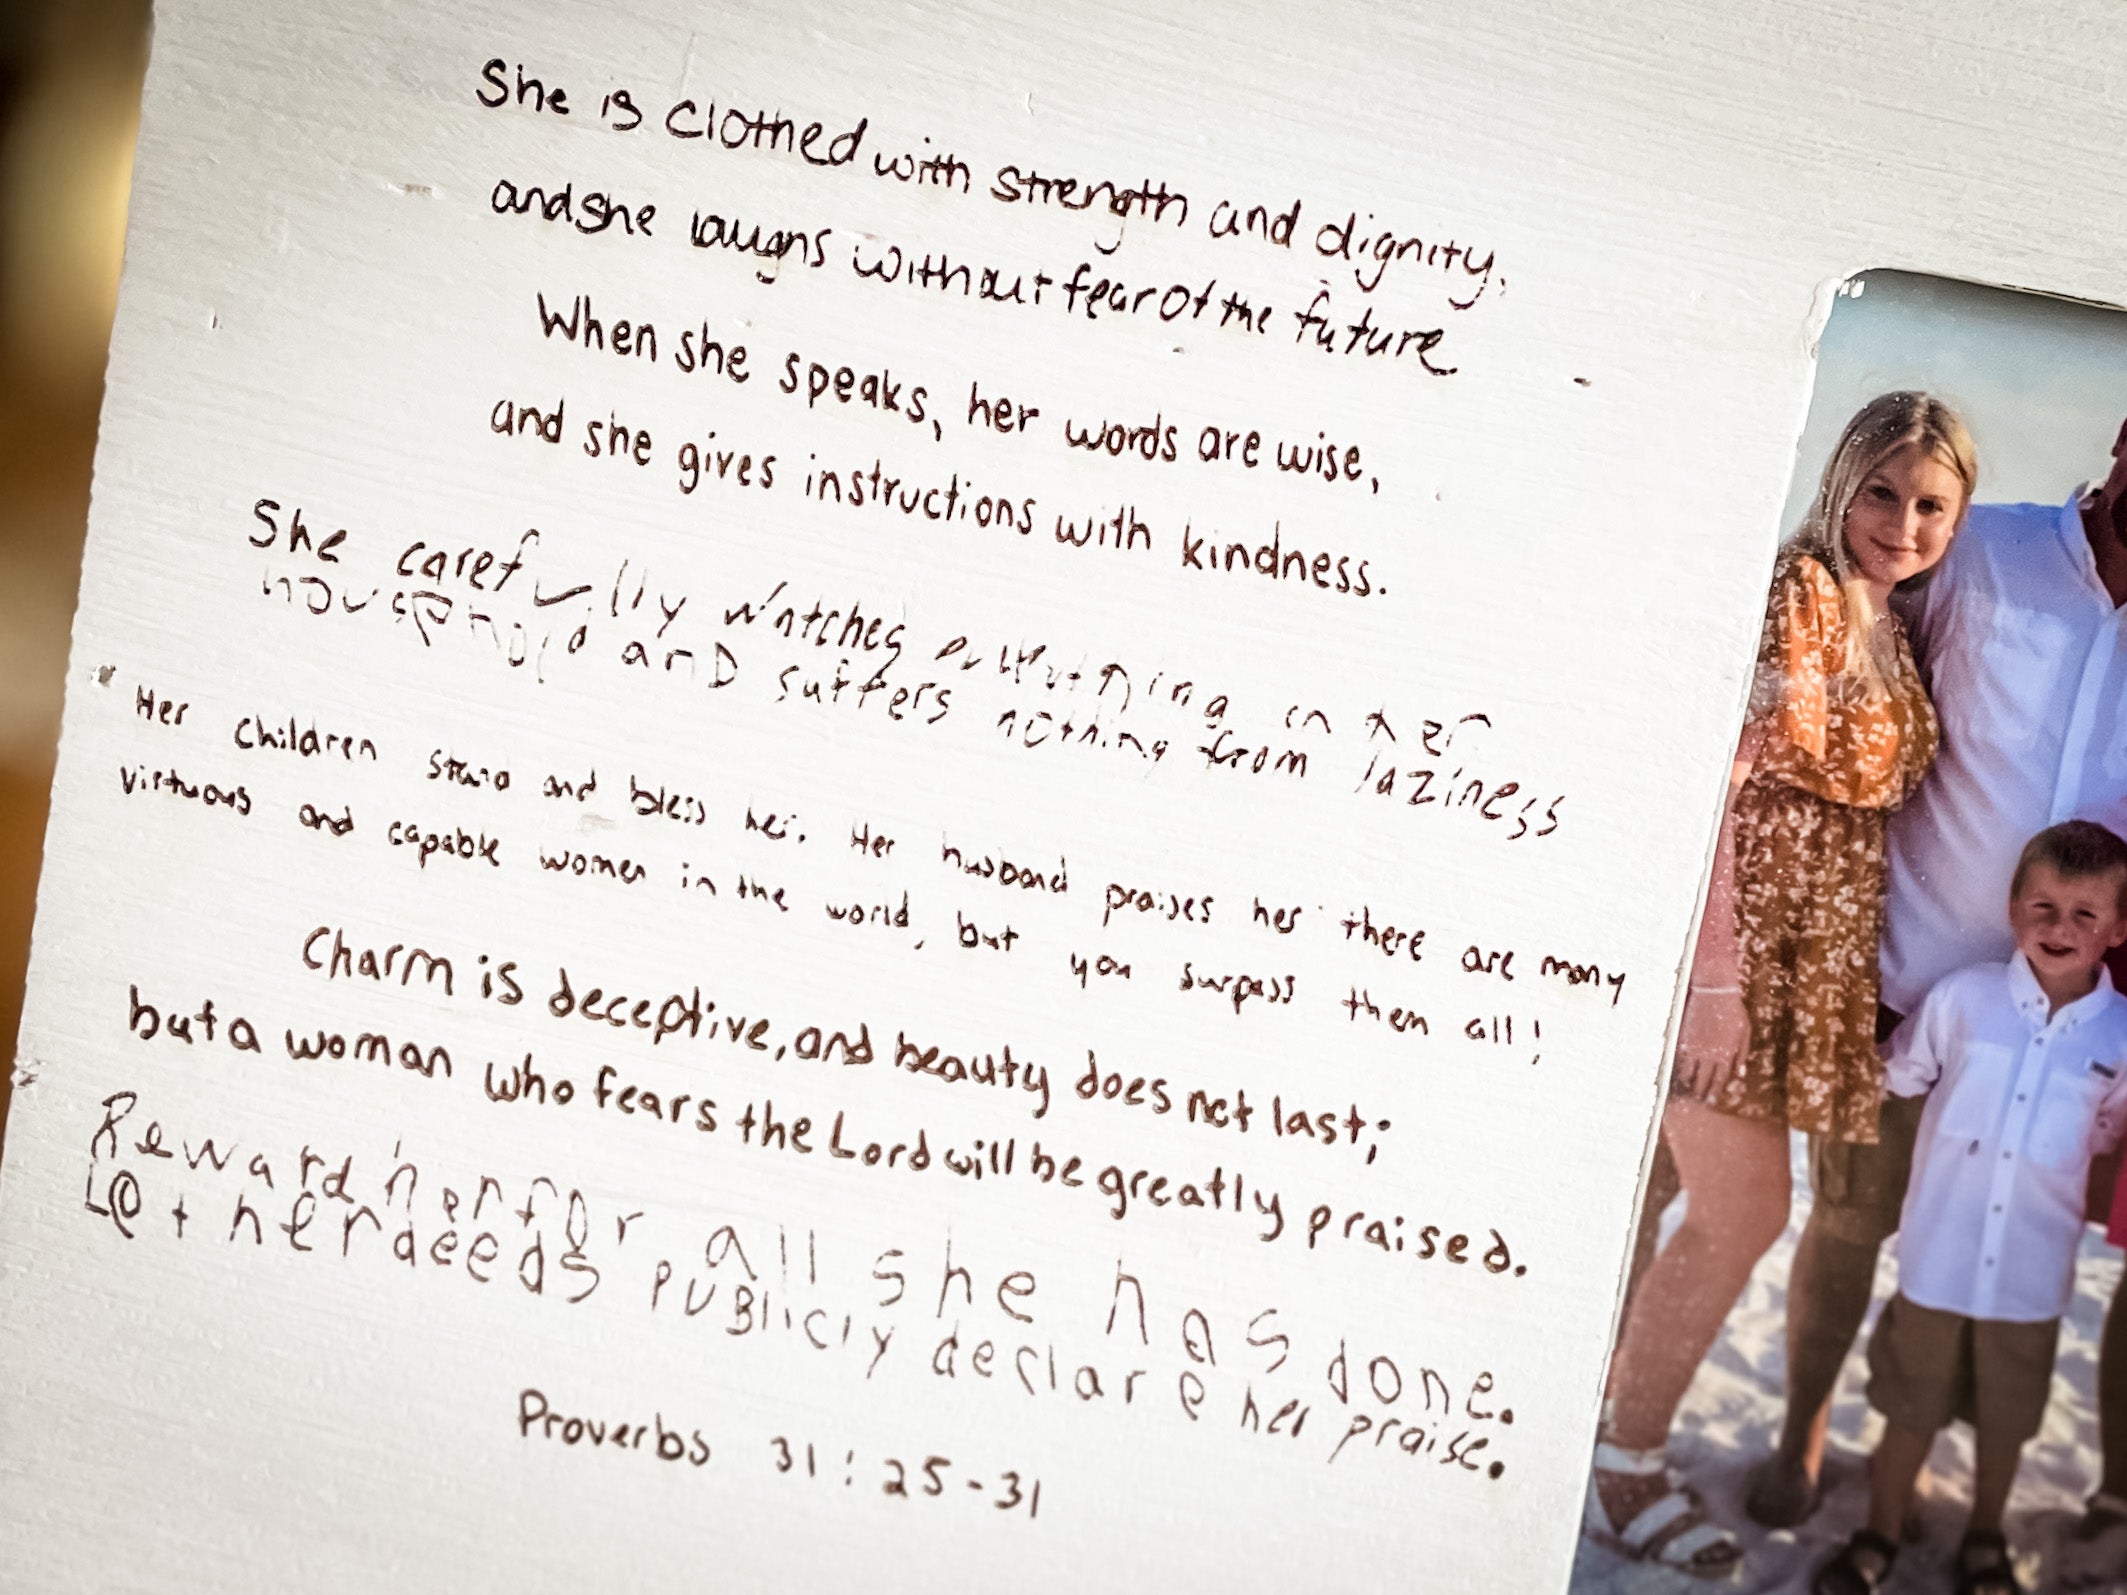 She is clothed with strength and dignity,
and she laughs without fear of the future.
When she speaks, her words are wise,
and she gives instructions with kindness.
She carefully watches everything in her
household and suffers nothing from laziness
Her children stand and bless her. Her husband praises her there are many
virtuous and capable women in the world, but you surpass them all!
Charm is deceptive, and beauty does not last;
but a woman who fears the Lord will be greatly praised.
Reward her for all she has done.
Let her deeds publicly declare her praise.
Proverbs 31:25-31